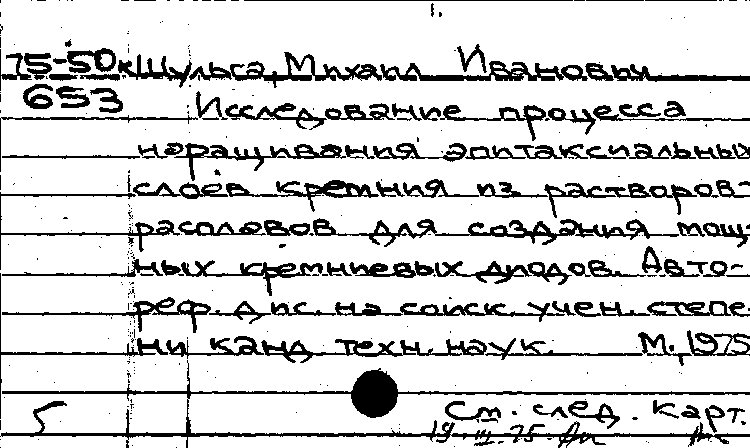 1.
75-50к Шульга, Михаил Иванович
653 Исследование процесса
наращивания эпитаксиальных
слоев кремния из растворов-
расплавов для создания мощ-
ных кремниевых диодов. Авто-
реф. дис. на соиск. учен. степе-
ни канд. техн. наук. М., 1975
5 См. след. карт.
19.III.75.